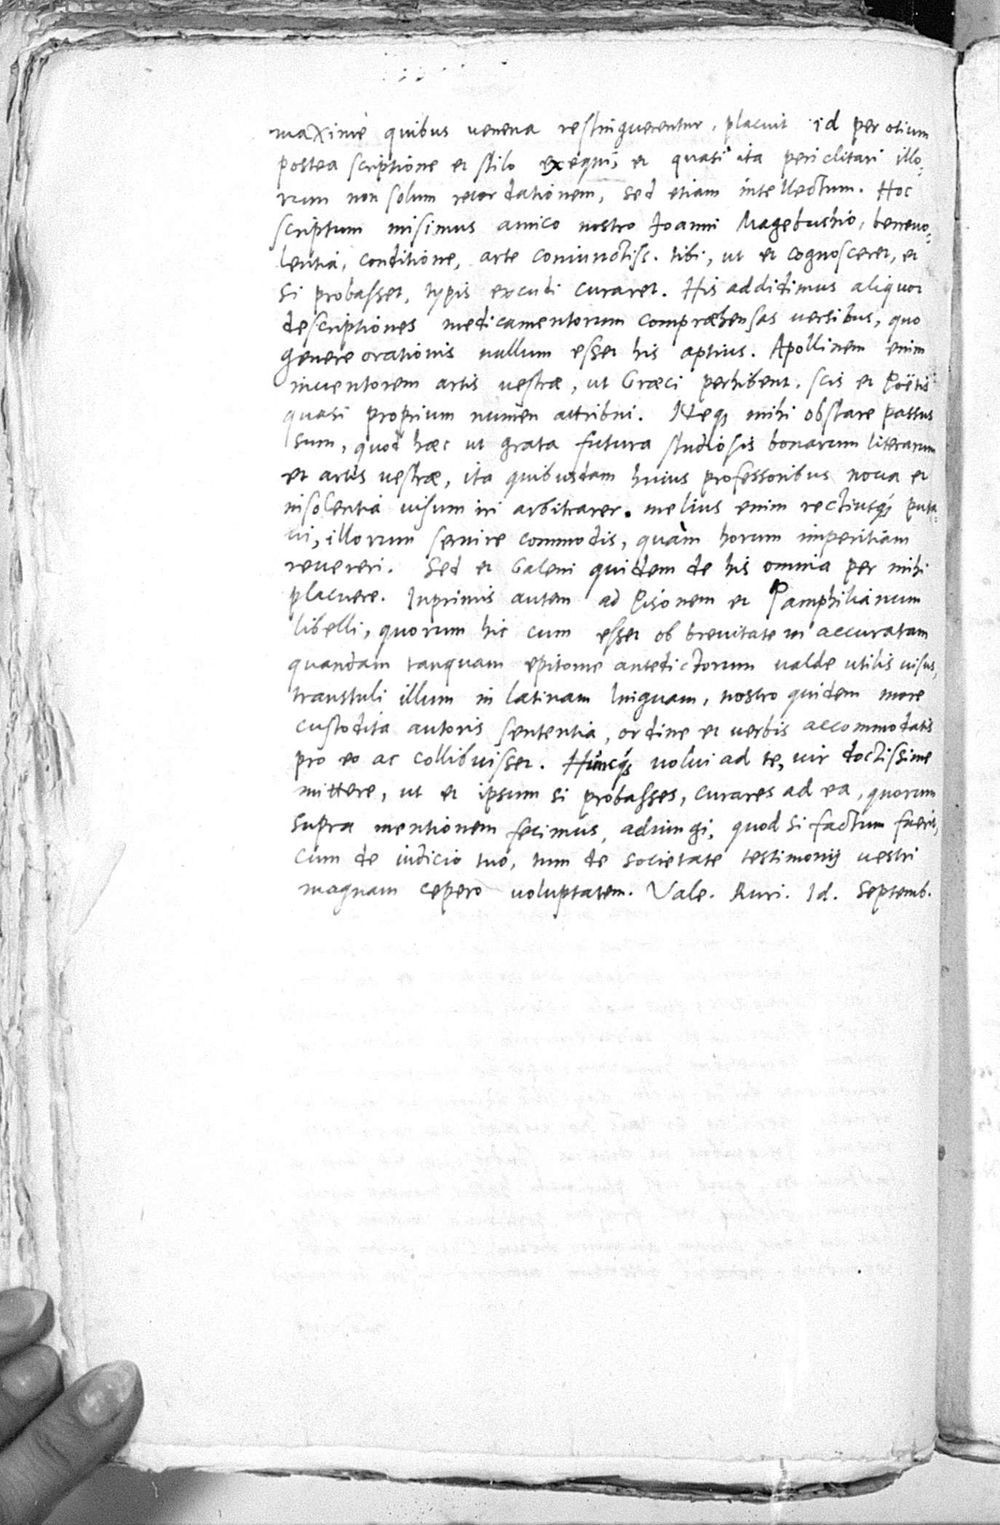 maxime quibus venena restinguerentur, placuit id per otium
postea scriptione et stilo exequi, et quasi ita periclitari illo-
rum non solum recordationem, sed etiam intellectum. Hoc
scriptum misimus amico nostro Joanni Magebuchio, benevo-
lentia, conditione, arte coniunctiss. tibi, ut et cognosceret, et
si probasset, typis excudi curaret. His addidimus aliquot
descriptiones medicamentorum compræhensas versibus, quo
genere orationis nullum esset his aptius. Apollinem enim
inventorem artis vestræ, ut Græci perhibent, scis et Poëtis
quasi proprium numen attribui. Neq; mihi obstare passus
sum, quod hæc ut grata futura studiosis bonarum literarum
et artis vestræ, ita quibusdam huius professoribus nova et
insolentia visum iri arbitrarer. melius enim rectiusq; puta-
vi, illorum servire commodis, quàm horum imperitiam
revereri. Sed et Galeni quidem de his omnia per mihi
placuere. Inprimis autem ad Pisonem et Pamphilianum
libelli, quorum hic cum esset ob brevitatem accuratam
quandam tanquam epitome antedictorum valde utilis visus,
transtuli illum in latinam linguam, nostro quidem more
custodita autoris sententia, ordine et verbis accommodatis
pro eo ac collibuisset. Huncq; volui ad te, vir doctissime
mittere, ut et ipsum si probasses, curares ad ea, quorum
supra mentionem fecimus, adiungi, quod si factum fuerit,
cum de iudicio tuo, tum de societate testimonij vestri
magnam cepero voluptatem. Vale. Ruri. Id. Septemb.